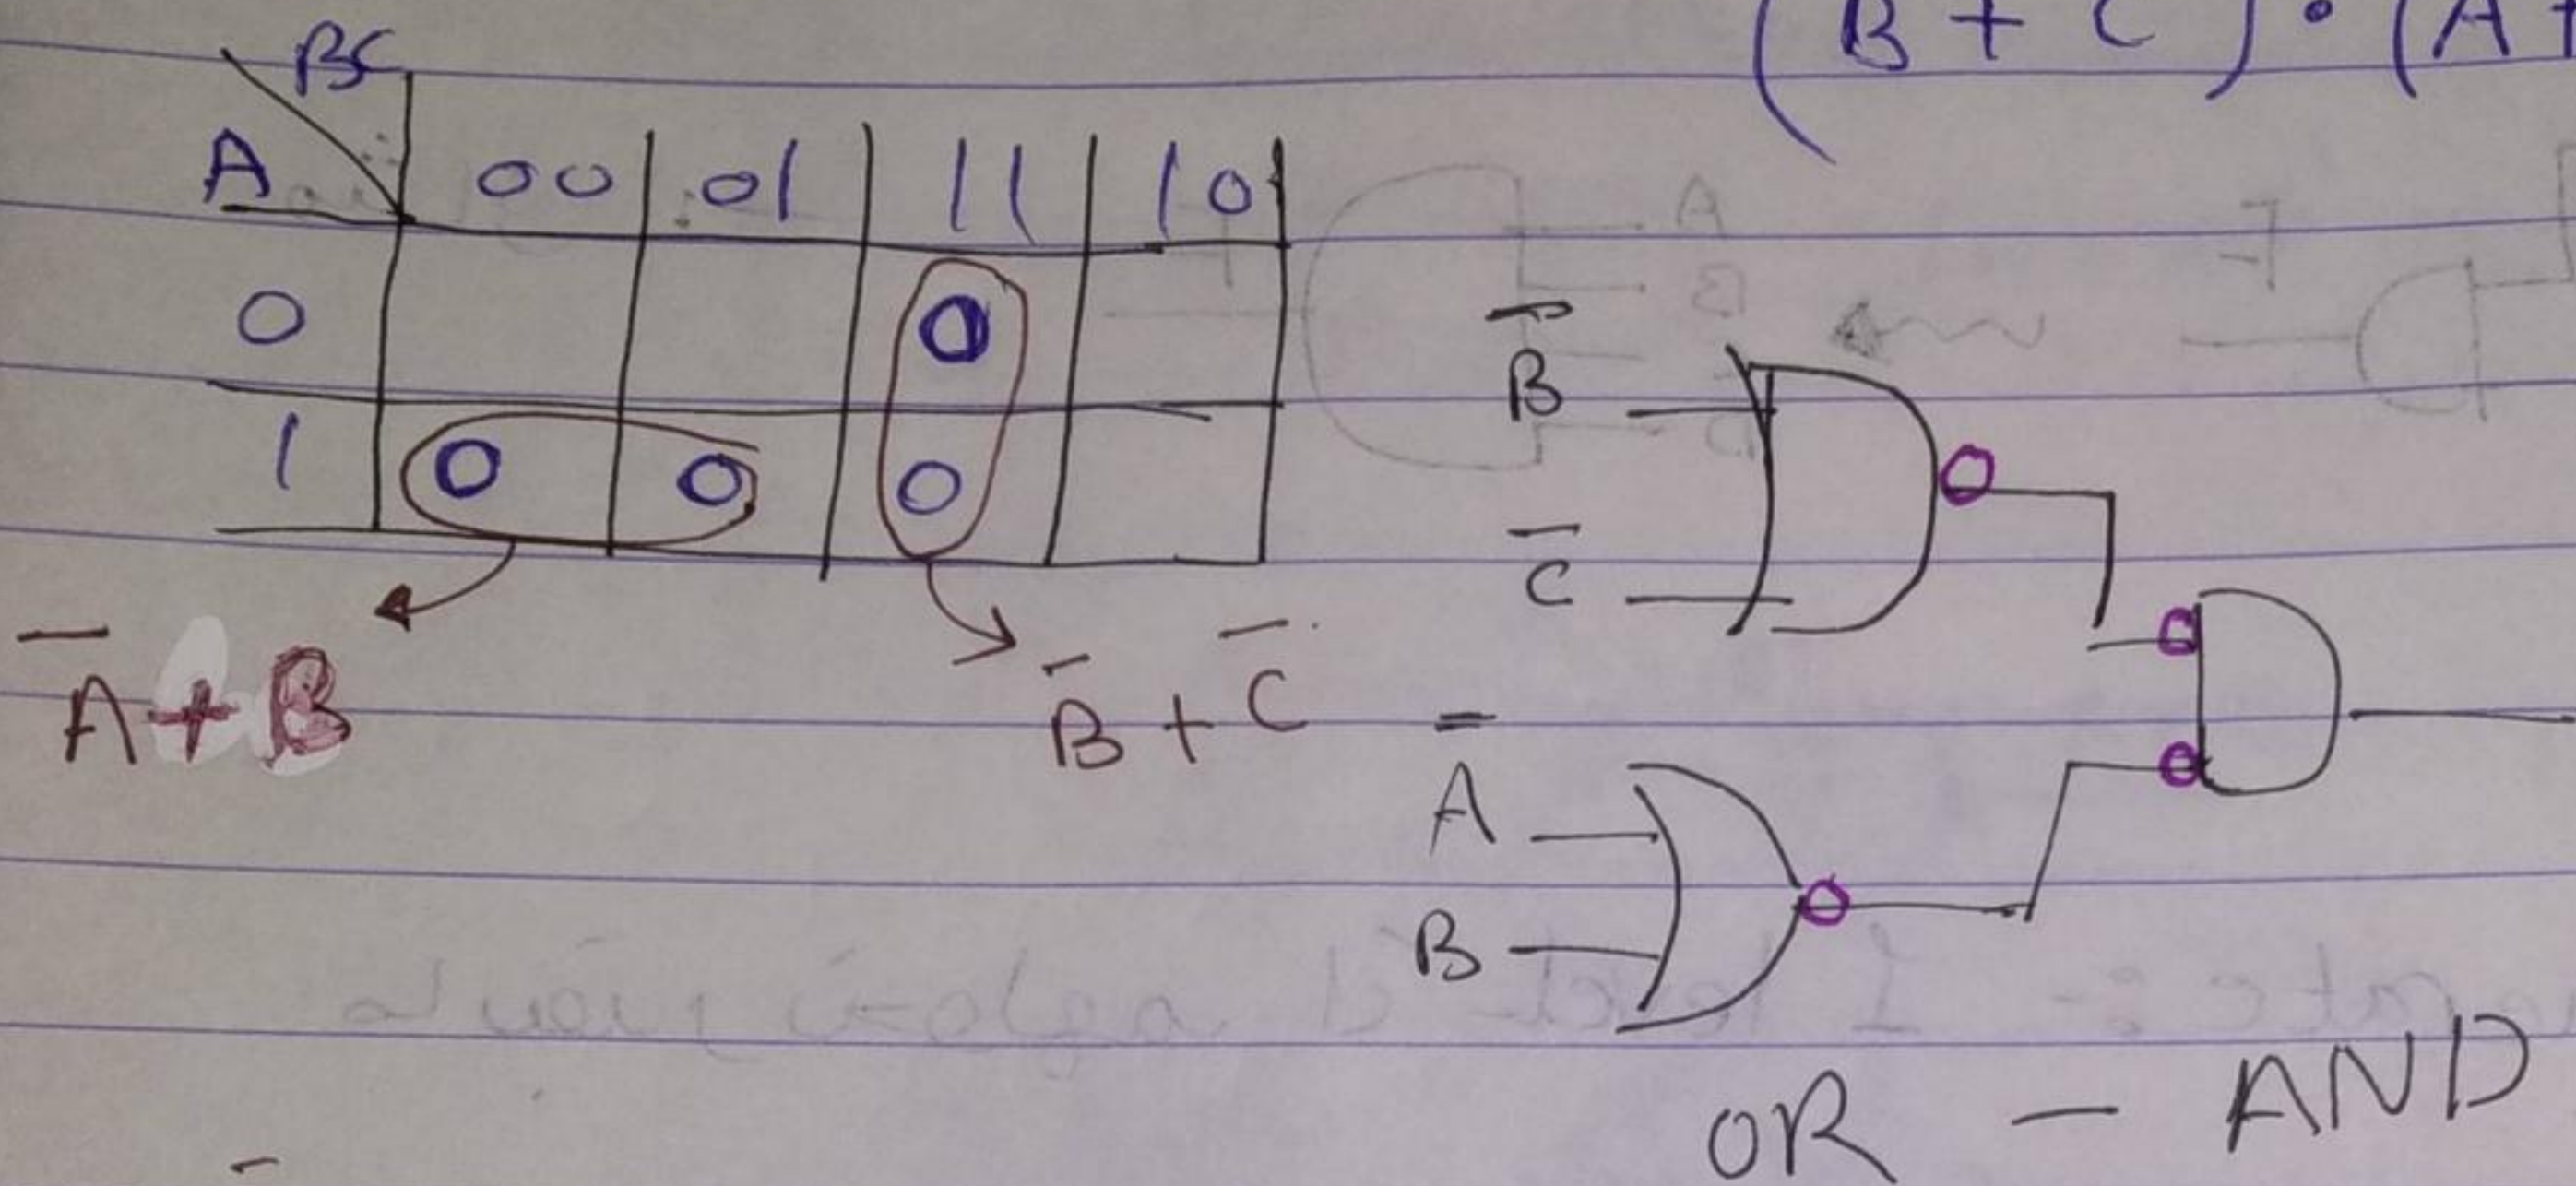 (B + C) · (A +
BC
A 00 01 11 10
0 0
1 0 0 0
A̅ + B
B̅ + C̅ =
B̅
C̅
A
B
OR - AND